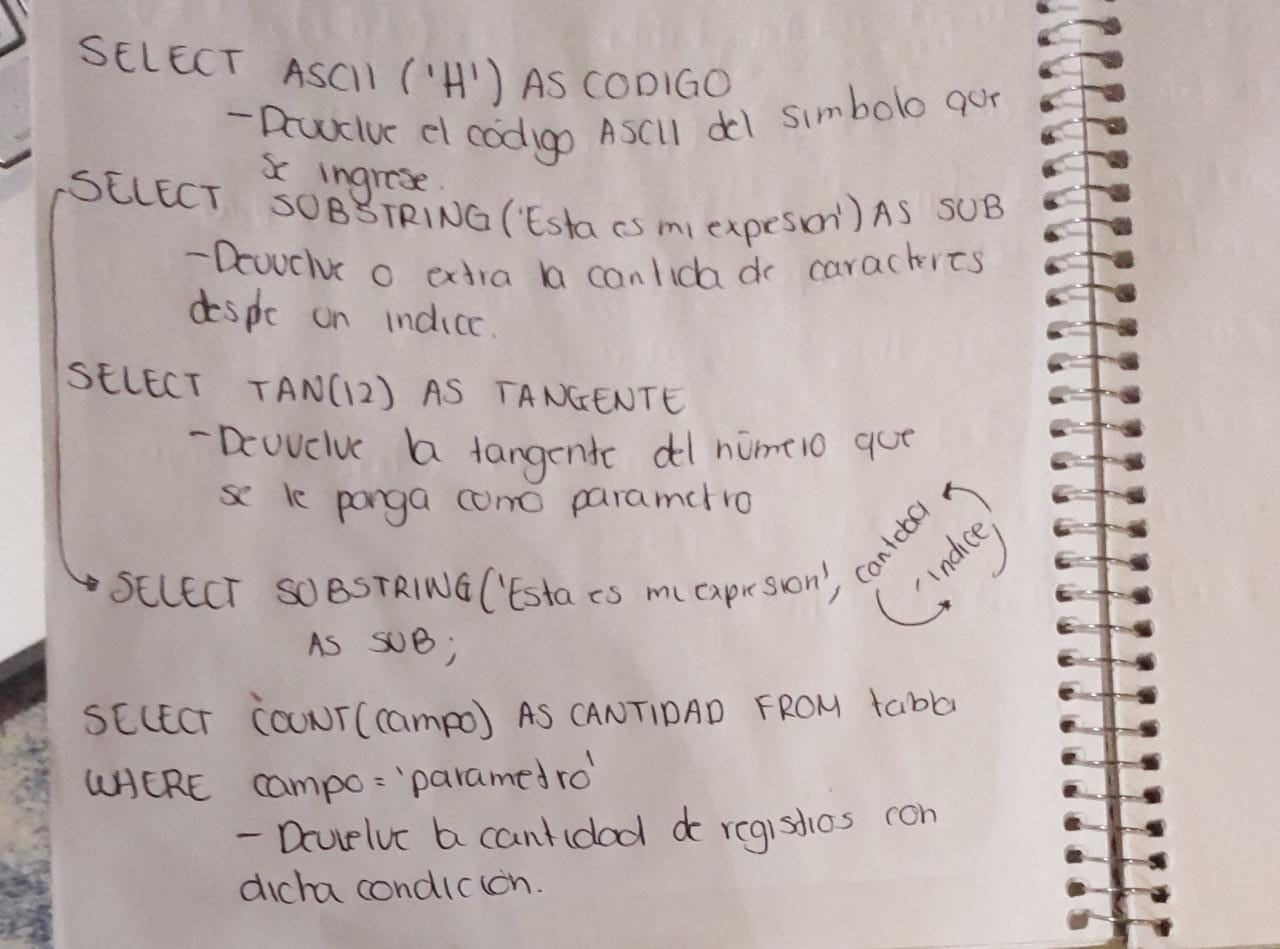 SELECT ASCII ('H') AS CODIGO
- Devuelve el código ASCII del simbolo que
se ingrese.
SELECT SUBSTRING ('Esta es mi expresion') AS SUB
- Devuelve o extra la cantida de caracteres
desde un indice.
SELECT TAN(12) AS TANGENTE
- Devuelve la tangente del número que
se le ponga como parametro
SELECT SUBSTRING ('Esta es mi expresion', , indice)
AS SUB;
SELECT COUNT(campo) AS CANTIDAD FROM tabla
WHERE campo = 'parametro'
- Devuelve la cantidad de registros con
dicha condición.